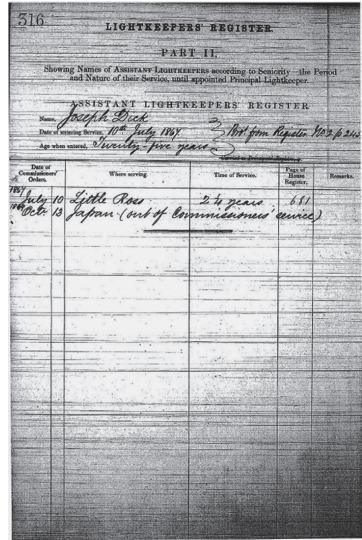 316
LIGHTKEEPERS' REGISTER.
PART II.
Showing Names of ASSISTANT LIGHTKEEPERS according to Seniority—the Period
and Nature of their Service, until appointed Principal Lightkeeper.
ASSISTANT LIGHTKEEPERS' REGISTER
Name, Joseph Dick
Date of entering Service, 10th July 1867 from Register No 2 p 243
Age when entered, Twenty-five years
Date of Commissioners' Orders. Where serving. Time of Service. Page of House Register. Remarks.
1867
July 10 Little Ross 2¼ years 681
1869 Octr 13 Japan (out of Commissioners' service)